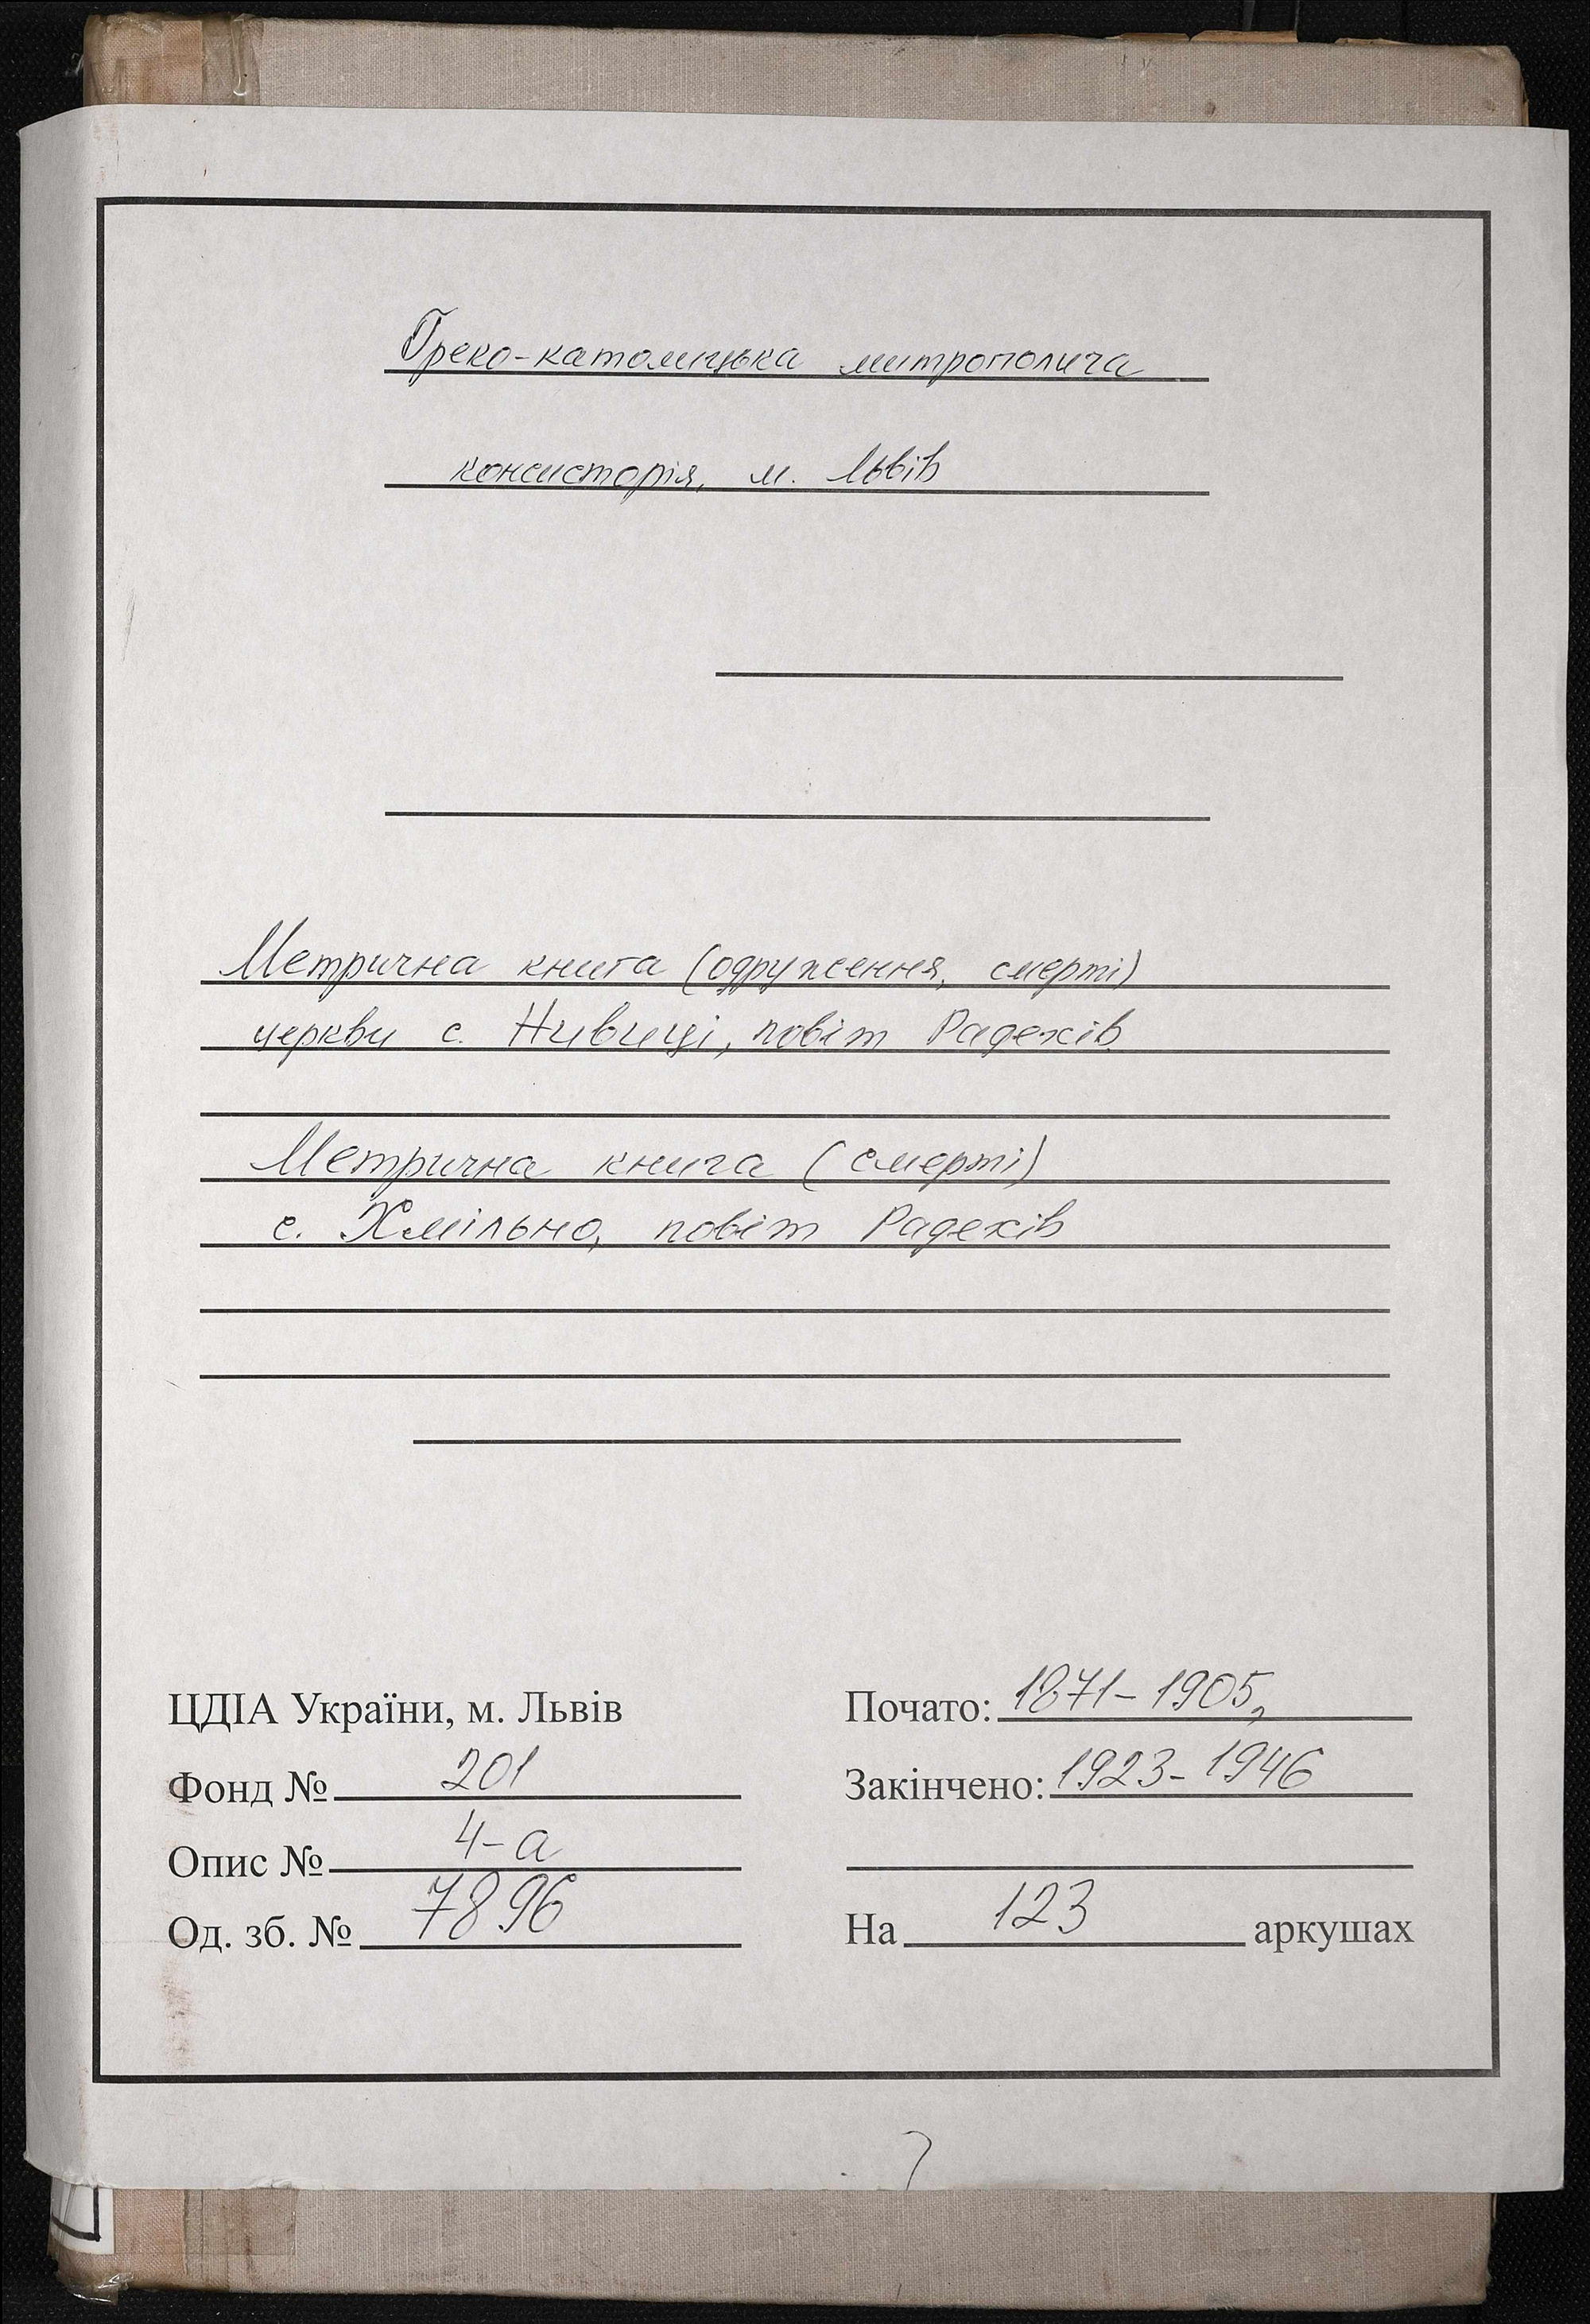 Греко-католицька митрополича
консисторія, м. Львів
Метрична книга (одруження, смерті)
церкви с. Нивиці, повіт Радехів
Метрична книга (смерті)
с. Хмільно, повіт Радехів
ЦДІА України, м. Львів
Фонд № 201
Опис № 4-а
Од. зб. № 7896
Почато: 1871-1905,
Закінчено: 1923-1946
На 123 аркушах